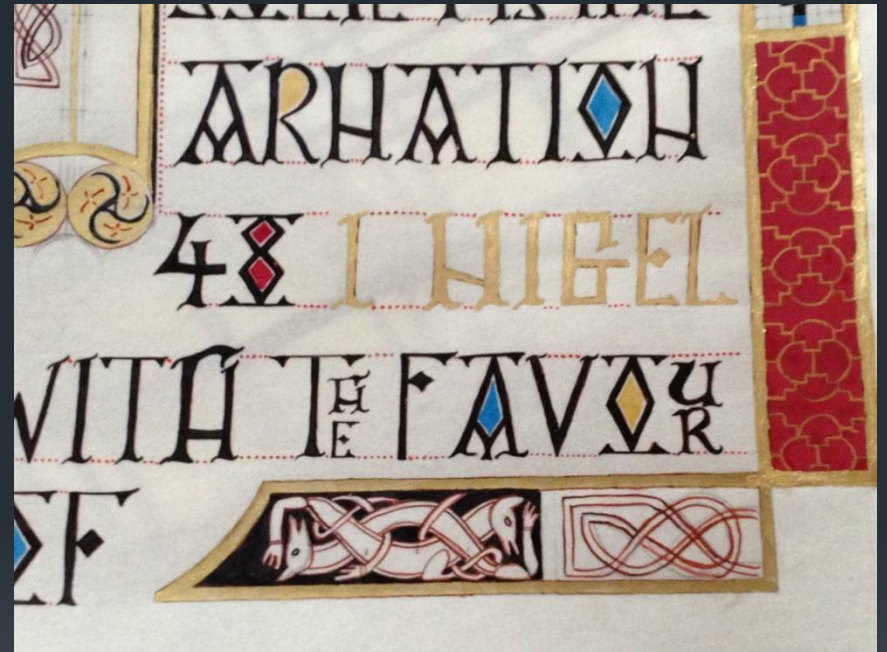 ARNATION
48 I NIGEL
WITH THE FAVOUR
OF